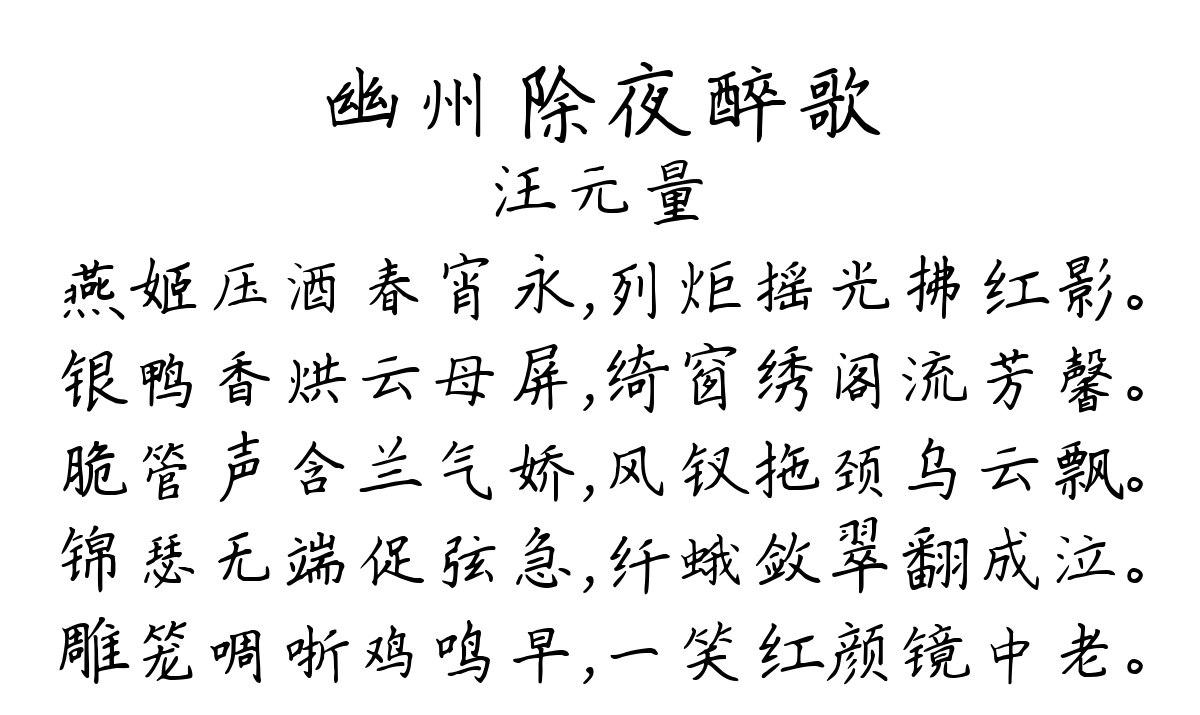 幽州除夜醉歌
汪元量
燕姬压酒春宵永,列炬摇光拂红影。
银鸭香烘云母屏,绮窗绣阁流芳馨。
脆管声含兰气娇,风钗拖颈乌云飘。
锦瑟无端促弦急,纤蛾敛翠翻成泣。
雕笼啁哳鸡鸣早,一笑红颜镜中老。